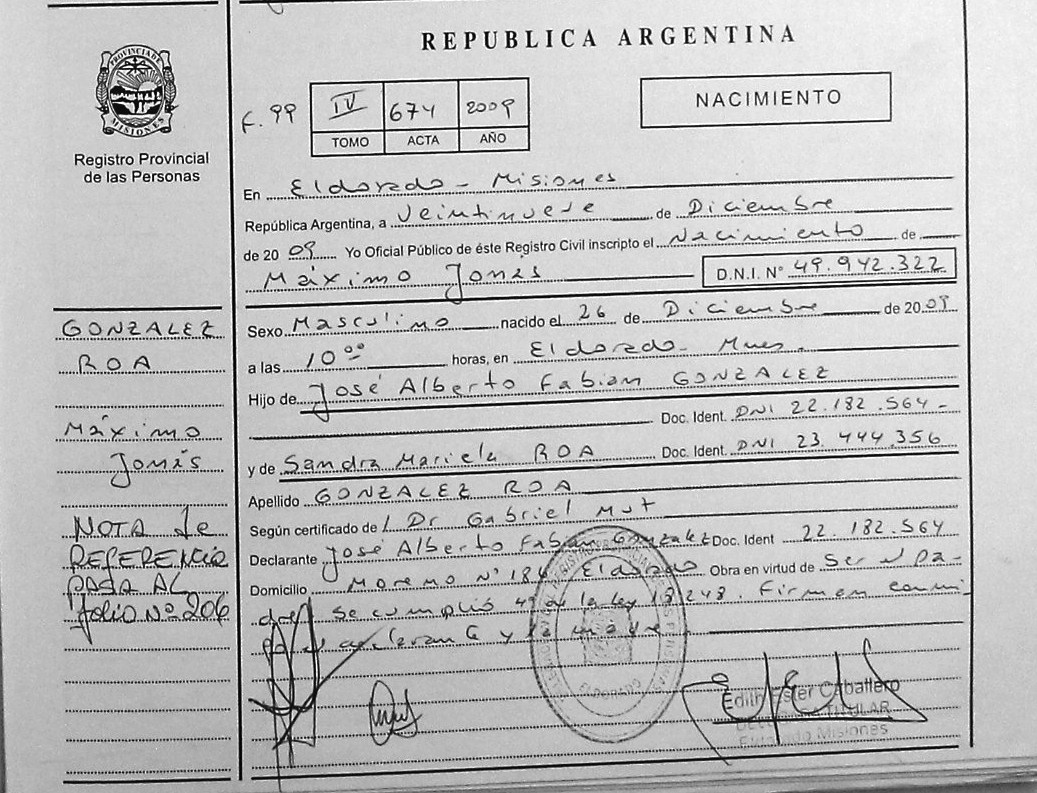 REPUBLICA ARGENTINA
PROVINCIA DE MISIONES
Registro Provincial
de las Personas
F. 99 IV 674 2009
TOMO ACTA AÑO
NACIMIENTO
En Eldorado - Misiones
República Argentina, a Veintinueve de Diciembre
de 20 09 Yo Oficial Público de éste Registro Civil inscripto el Nacimiento de
Máximo Jonás D.N.I. N° 49.942.322
Sexo Masculino nacido el 26 de Diciembre de 20 09
a las 10 00 horas, en Eldorado - Mnes.
Hijo de José Alberto Fabian GONZALEZ
Doc. Ident. DNI 22.182.564 -
y de Sandra Mariela ROA Doc. Ident. DNI 23.444.356
Apellido GONZALEZ ROA
Según certificado de / Dr Gabriel Mut
Declarante José Alberto Fabian Gonzalez Doc. Ident 22.182.564
Domicilio Moreno N° 184 Eldorado Obra en virtud de Ser el pa-
dre. Se cumplió la ley 18.248. Firman conmi
y la madre.
GONZALEZ
ROA
Máximo
Jonás
NOTA de
REFERENCIA
PASA AL
folio N° 206
ELDORADO
Edith Ester Caballero
TITULAR
Eldorado Misiones